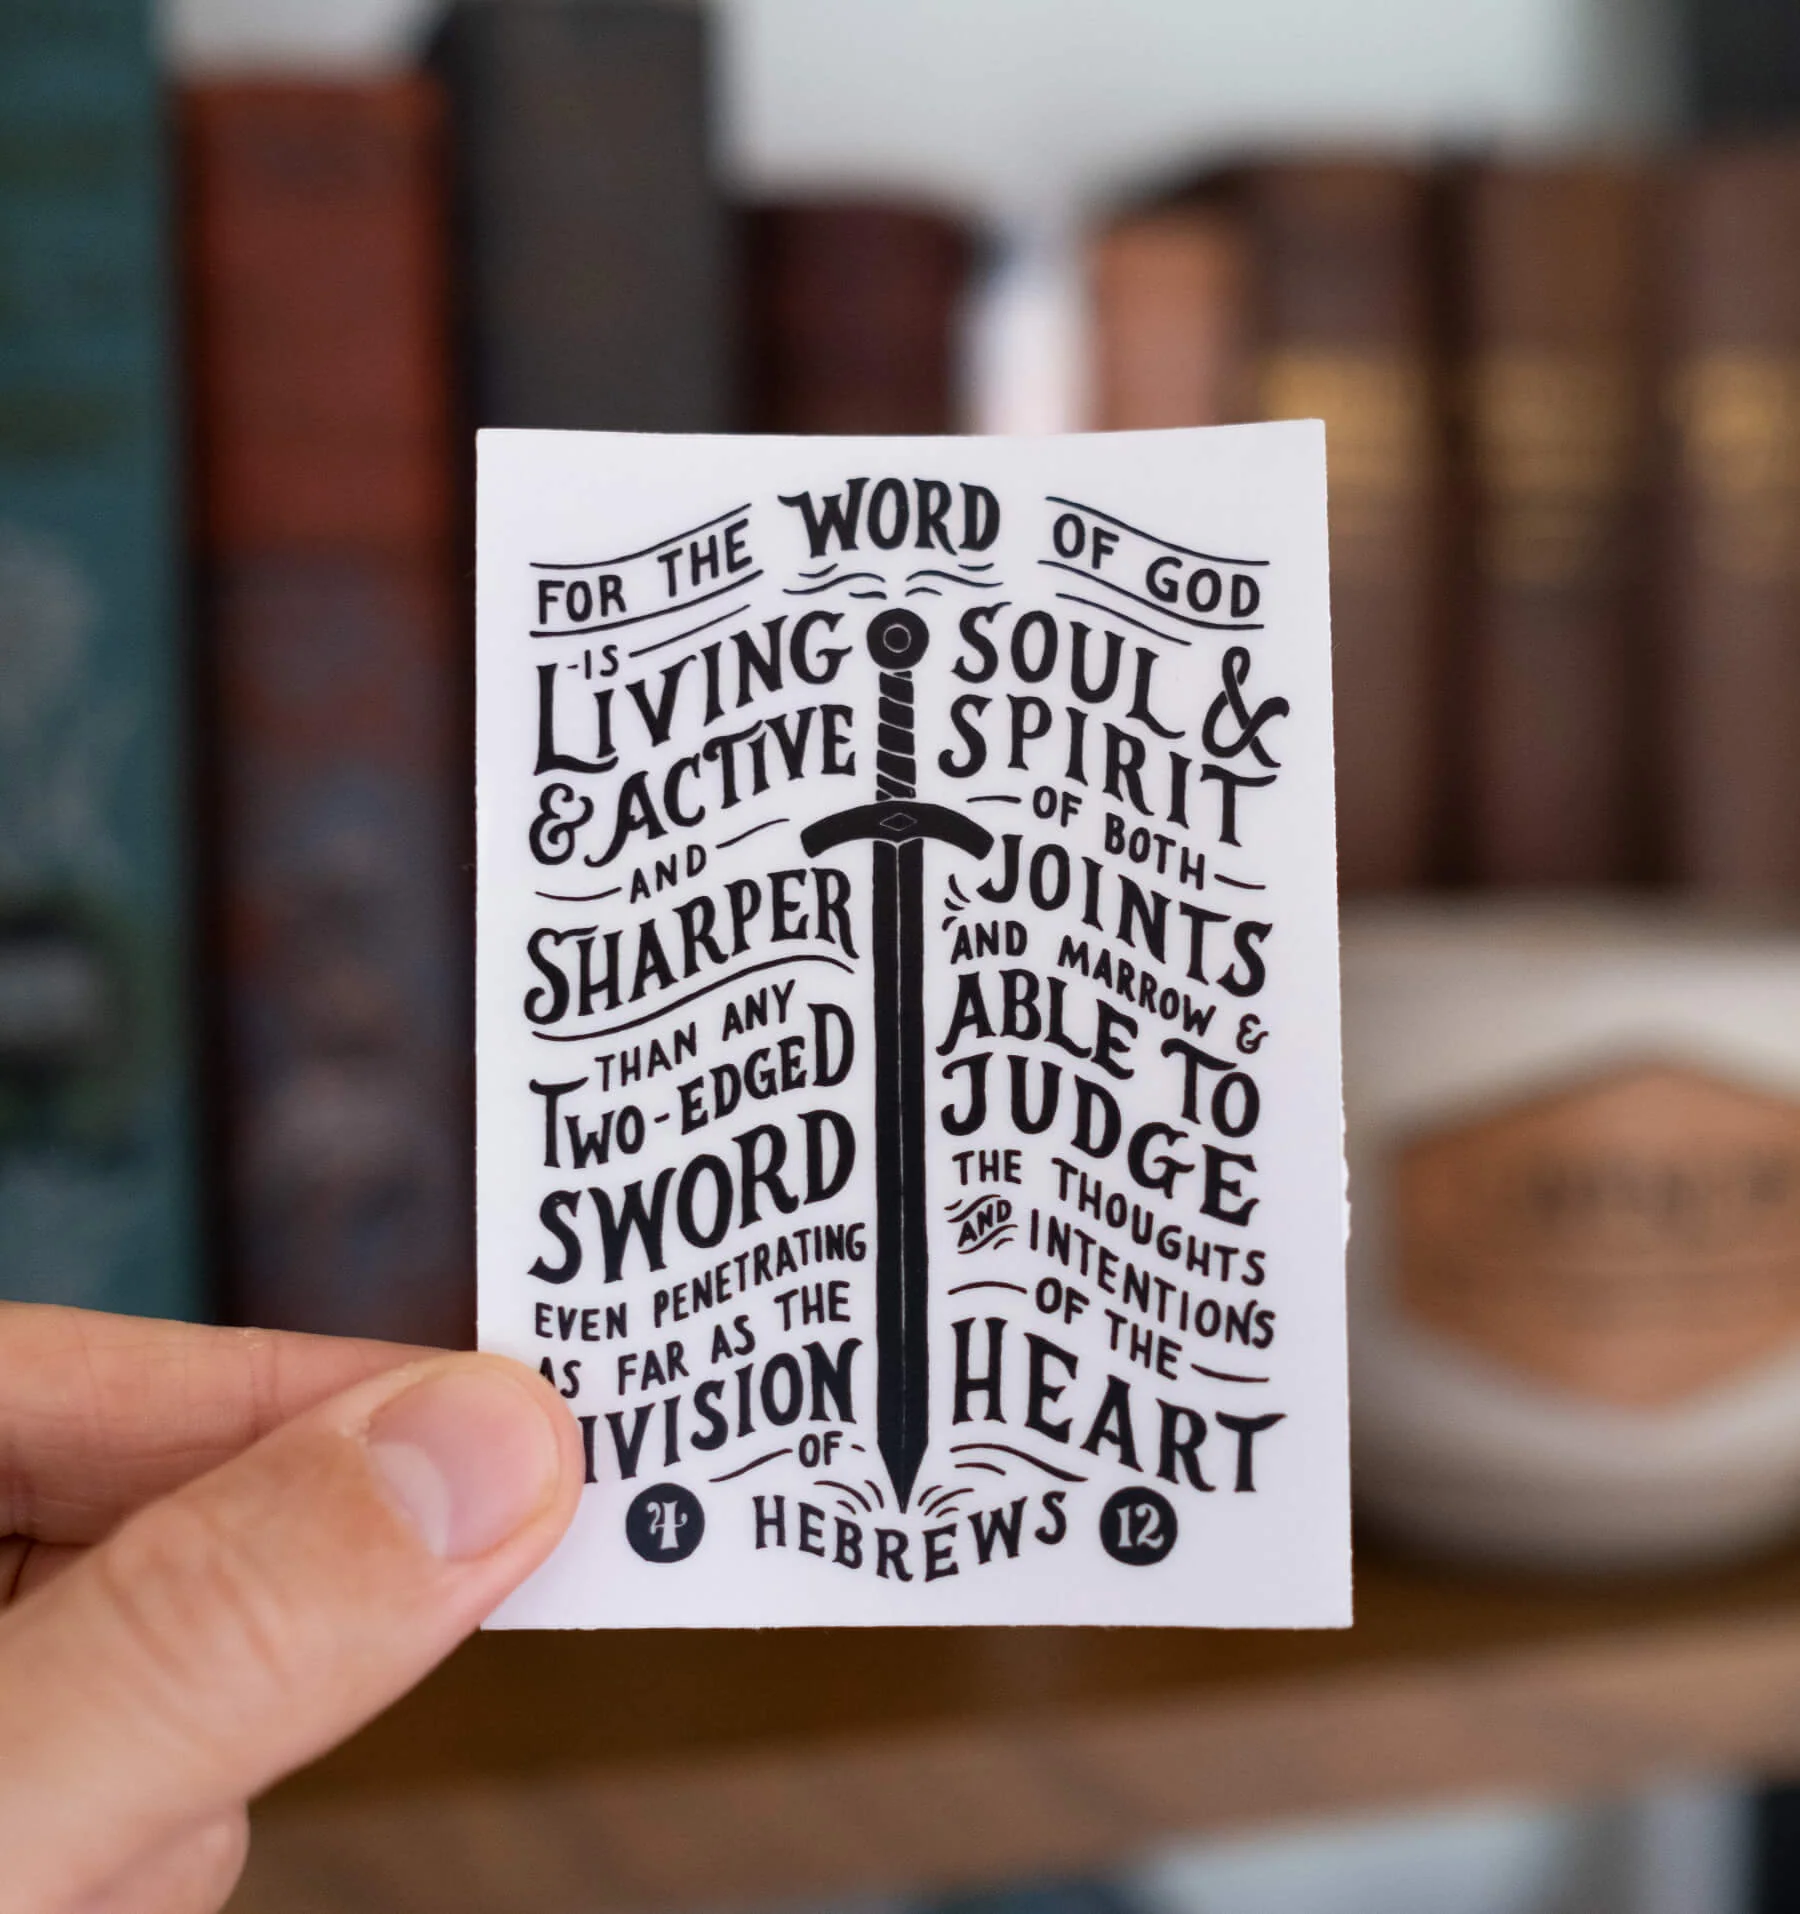 FOR THE WORD OF GOD
-IS
LIVING
& ACTIVE
AND
SHARPER
THAN ANY
TWO-EDGED
SWORD
EVEN PENETRATING
AS FAR AS THE
IVISION
OF-
SOUL &
SPIRIT
OF BOTH
JOINTS
AND MARROW &
ABLE TO
JUDGE
THE THOUGHTS
AND INTENTIONS
OF THE
HEART
4 HEBREWS 12